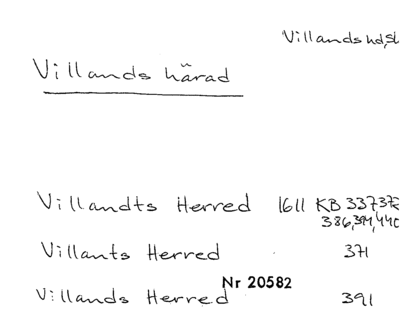 Villands hd, Sk
Villands härad
Villandts Herred 1611 KB 337, 372
386, 394, 440
Villants Herred 371
Nr 20582
Villands Herred 391